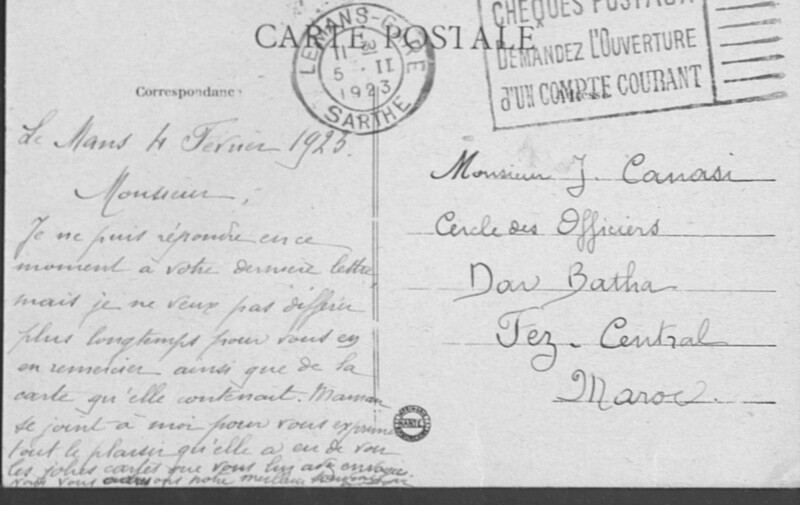 CARTE POSTALE
LE MANS-GARE
5 II
1923
SARTHE
CHÈQUES POSTAUX
DEMANDEZ L'OUVERTURE
d'UN COMPTE COURANT
Correspondance
Le Mans 4 Février 1923.
Monsieur,
Je ne puis répondre en ce
moment à votre dernière lettre,
mais je ne veux pas différer
plus longtemps pour vous en
en remercier ainsi que de la
carte qu'elle contenait. Maman
se joint à moi pour vous exprimer
tout le plaisir qu'elle a eu de voir
les jolies cartes que vous lui avez envoyées.
nous vous notre meilleur
Monsieur J. Canasi
Cercle des Officiers
Dar Batha
Fez-Central
Maroc.
NANTES